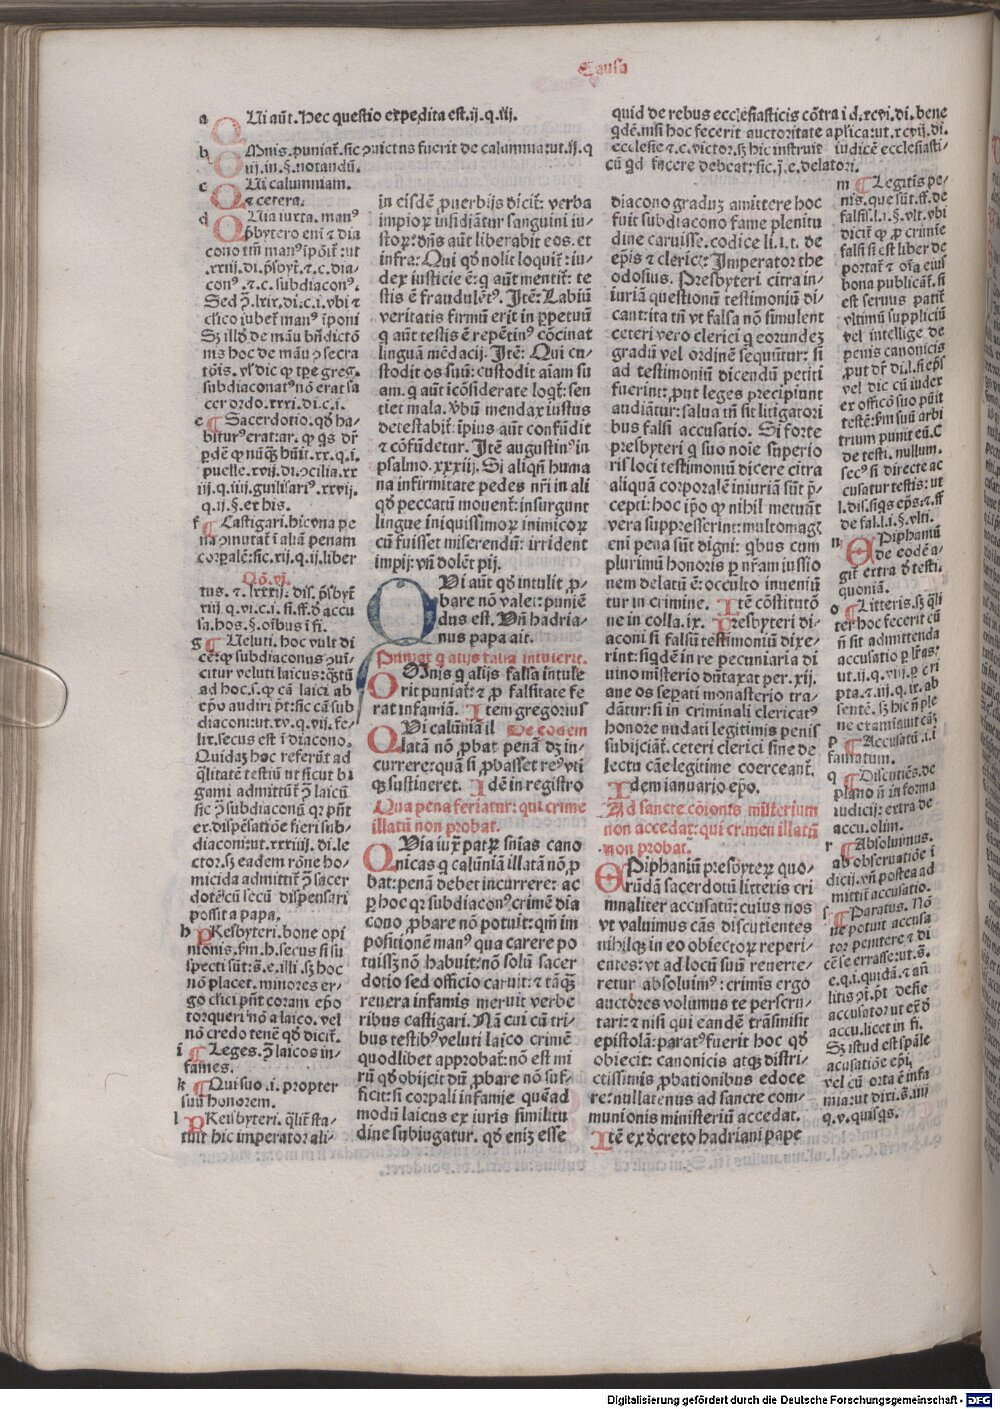 Causa
a QUi aūt. Hec questio expedita est.ij.q.iij.
b OMnis.puniat̄.sic ɔuictus fuerit de calumnia:ut.ij.q
iij.in.§.notandū.
c QUi calumniam.
⁊ cetera.
d QUia iuxta. manꝰ
p̄bytero eni ⁊ dia
cono tm̄ manꝰ īpōit̄ :ut
.xxiij.di.p̄sbyt̄.⁊.c.dia-
conꝰ.⁊.c.subdiaconꝰ.
Sed ꝯ̄.lxix.di.c.i.vbi ⁊
clīco iubet̄ manꝰ īponi
Sꝫ illd̄ de manu bn̄dictō
nis hoc de manu ɔsecra
tōis. vl̓ dic ꝙ tp̄e greg.
subdiaconatꝰ nō erat sa
cer ordo.xxxi.di.c.i.
e ¶ Sacerdotio. qd̓ ha-
biturꝰ erat:ar. ꝙ qs dr̄
ꝑdē̓ ꝙ nūqꝫ hūit.xx.q.i.
puelle.xvij.di.ɔcilia.xx
iij.q.iiij.guilisariꝰ.xxvij.
q.ij.§.ex his.
f ¶ Castigari.hic vna pe
na ɔmutat̄ ī aliā penam
corꝑalē:sic.xij.q.ij.liber
Qō.vj.
tus.⁊.lxxxij.dis.p̄sbyt̄
xiij q.vi.c.i. fi.ff.d̓ accu
sa.hos.§.oībus ī fi.
g ¶ Ueluti. hoc vult di
cē:ꝙ subdiaconus ɔuī-
citur veluti laicus:q̄tū
ad hoc.s.ꝙ cā laici ab
ep̄o audiri pn̄t:sic cā sub
diaconi:ut.xv.q.vij.fe-
lix.secus est ī diacono.
Quidaꝫ hoc referūt ad
q̄litatē testiū ut sicut bi
gami admittūt̄ ꝯ̄ laicū
sic ꝯ̄ subdiaconū qꝛ pn̄t
ex.dispēsatiōe fieri sub-
diaconi:ut.xxxiiij.di.le
ctor.sꝫ eadem rōne ho-
micida admittit̄ ꝯ̄ sacer
dotē:cū secū dispensari
possit a papa.
h PResbyteri.bone opi
nionis.ẜm.h.secus si su
specti sūt:s̄.e.illi.sꝫ hoc
nō placet.minores er-
go clīci pn̄t coram ep̄o
torqueri:nō a laico. vel
nō credo tenē qd̓ dicit̄.
i ¶ Leges.ꝯ̄ laicos in-
fames.
k ¶ Qui suo .i. propter
suū honorem.
l PResbyteri. q̄lit̄ sta-
tuit hic imperator ali-
in eisdē ꝓuerbijs dicit̄: verba
impioꝝ insidiātur sanguini iu-
stoꝝ:dn̄s aūt liberabit eos. et
infra: Qui qd̓ nolit loquit̄:iu-
dex iusticie ē:q̄ aūt mentit̄: te
stis ē fraudulētꝰ. Itē: Labiū
veritatis firmū erit in ꝑpetuū
q̄ aūt testis ē repētinꝰ cōcinat
linguā mēdacij. Itē: Qui cu-
stodit os suū: custodit aīam su
am.q̄ aūt icōsiderate loqt̄:sen
tiet mala. v̄bū mendax iustus
detestabit̄:īpius aūt confūdit
⁊ cōfūdetur. Itē augustinꝰ in
psalmo.xxxiij. Si aliqn̄ huma
na infirmitate pedes nr̄i in ali
qd̓ peccatū mouent̄:insurgunt
lingue iniquissimoꝝ inimicoꝝ
cū fuisset miserendū: irrident
impij:vn̄ dolēt pij.
QUi aūt qd̓ intulit ꝓ-
bare nō valet:puniē
dus est. Vn̄ hadria-
nus papa ait.
Puniat̄ q̄ alijs falsa intulerit.
OMnis q̄ alijs falsa intule
rit puniat̄:⁊ ꝓ falsitate fe
rat infamiā. Item gregorius
QUi calūniā il De eodem
latā nō ꝓbat penā dꝫ in-
currere:quā si ꝓbasset reꝰ vti
qꝫ sustineret. Idē in registro
Qua pena feriatur: qui crimē
illatū non probat.
QUia iux̄ patꝝ snīas cano
nicas q̄ calūniā illatā nō ꝓ
bat:penā debet incurrere: ac
ꝑ hoc qꝛ subdiaconꝰ crimē dia
cono ꝓbare nō potuit:qm̄ im
positionē manꝰ qua carere po
tuissꝫ nō habuit:nō solū sacer
dotio sed officio caruit:⁊ tāqꝫ
reuera infamis meruit verbe
ribus castigari. Nā cui cū tri-
bus testibꝰ veluti laico crimē
quodlibet approbat̄:nō est mi
rū qd̓ obijcit dū ꝓbare nō suf-
ficit:si corꝑali infamie quēad
modū laicus ex iuris similitu
dine subiugatur. qd̓ eniꝫ esse
quid de rebus ecclesiasticis cōtra i d.xcvi.di. bene
q̄dē.nisi hoc fecerit auctoritate aplīca:ut.xcvij.di.
ecclesie ⁊.c.victor.sꝫ hic instruit iudicē ecclesiasti-
cū qd̓ facere debeat:sic.j.e.delatori.
diacono graduꝫ amittere hoc
fuit subdiacono fame plenitu
dine caruisse.codice li.i.t. de
ep̄is ⁊ clericꝭ: Imperator the
odosius. Presbyteri citra in-
iuriā questionū testimoniū di-
cant:ita tn̄ vt falsa nō simulent
ceteri vero clerici q̄ eorundeꝫ
gradū vel ordinē sequūtur: si
ad testimoniū dicendū petiti
fuerint:ꝓut leges precipiunt
audiātur:salua tn̄ sit litigatori
bus falsi accusatio. Si forte
presbyteri q̄ suo noīe superio
ris loci testimoniū dicere citra
aliquā corporalē iniuriā sūt p̄-
cepti: hoc ip̄o ꝙ nihil metuāt
vera suppresserint:multomagꝭ
eni pena sūt digni: qbus cum
plurimū honoris ꝑ nr̄am iussio
nem delatū ē:occulto inueniū
tur in crimine. Itē cōstitutō
ne in colla.ix. Presbyteri di-
aconi si falsū testimoniū dixe-
rint:siqdē in re pecuniaria di
uino misterio dūtaxat per.xij.
āne os sepati monasterio tra-
dātur:si in criminali clericatꝰ
honore nudati legitimis penis
subijciāt̄.ceteri clerici sine de
lectu cāne legitime coerceant̄.
Idem ianuario ep̄o.
Ad sancte cōionis misterium
non accedat:qui crimen illatū
non probat.
EPiphaniū presbyteꝝ quo-
rūdā sacerdotū litteris cri
minaliter accusatū: cuius nos
vt valuimus cās discutientes
nihilqꝫ in eo obiectoꝝ reperi-
entes:vt ad locū suū reuerte-
retur absoluimꝰ: criminis ergo
auctores volumus te perscru-
tari:⁊ nisi qui eandē trāsmisit
epistolā:paratꝰ fuerit hoc qd̓
obiecit: canonicis atqꝫ distri-
ctissimis ꝓbationibus edoce
re:nullatenus ad sancte com-
munionis ministeriū accedat.
Itē ex d̓creto hadriani pape
m ¶ Legitis pe-
nis.que sūt.ff.de
falsis.l.i.§.vlt.vbi
dicit̄ ꝙ ꝓ crimīe
falsi si est liber de
portat̄ ⁊ oīa eius
bona publicāt̄.si
est seruus patit̄
vltimū suppliciū
vel intellige de
penis canonicis
.put dr̄ di.l.si ep̄s
vel dic cū iudex
ex officō suo pūit
testē:ẜm suū arbi
trium punit eū.C
de testi. nullum.
secꝰ si directe ac
cusatur testis:ut
l.dis.siqs ep̄s.⁊.ff
de fal.l.i.§.vlti.
n EPiphaniū
de eodē a-
git̄ extra d̓ testi-
quoniā.
o ¶ Litteris.sꝫ q̄li
ter hoc fecerit cū
n̄ sit admittenda
accusatio ꝑ lr̄as:
ut.ij.q.viij.ꝑ scri
pta.⁊.iij.q.ix.ab
sentē.sꝫ hic n̄ ple
ne examīaūt cāꝫ
p ¶ Accusatū.i.i
famatum.
q ¶ Discutiēs.de
plano n̄ in forma
iudicij: extra de
accu.olim.
r ¶ Absoluimus.
ab obseruatiōe ī
dicij.vn̄ postea ad
mittit̄ accusatio.
s ¶ Paratus. Nō
ne potuit accusa
tor penitere ⁊ di
cē se errasse:ut.s̄.
e.q.i.quidā.⁊ an̄
litis ɔt̄.pt̄ desie
accusator ut ex̄ d̓
accu.licet in fi.
Sꝫ istud est spāle
ī accusatiōe ep̄i,
vel cū orta ē infa
mia:ut dixi.s̄.iiij
q.v.quisqs.
Digitalisierung gefördert durch die Deutsche Forschungsgemeinschaft - DFG